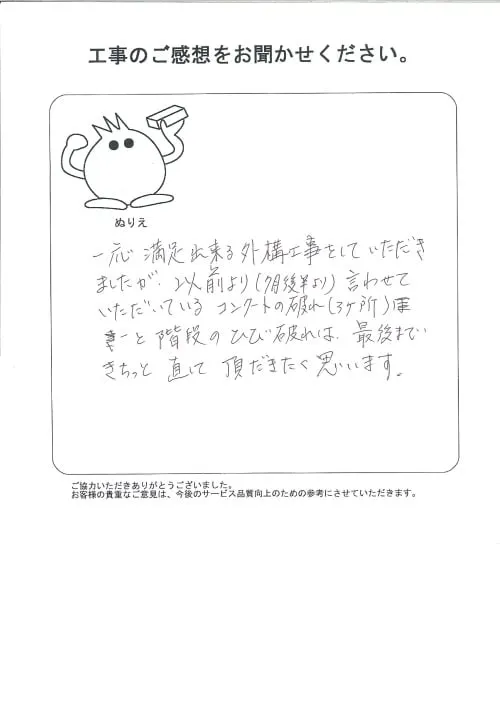 工事のご感想をお聞かせください。
ぬりえ
一応 満足出来る外構工事をしていただき
ましたが、以前より(7月後半より)言わせて
いただいている コンクートの破れ(3ヶ所)
と階段のひび破れは、最後まで
きちっと 直して 頂だきたく思います。
ご協力いただきありがとうございました。
お客様の貴重なご意見は、今後のサービス品質向上のための参考にさせていただきます。